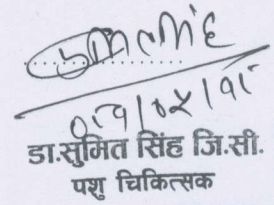 ०७/०४/७८
डा.सुमित सिंह जि.सी.
पशु चिकित्सक